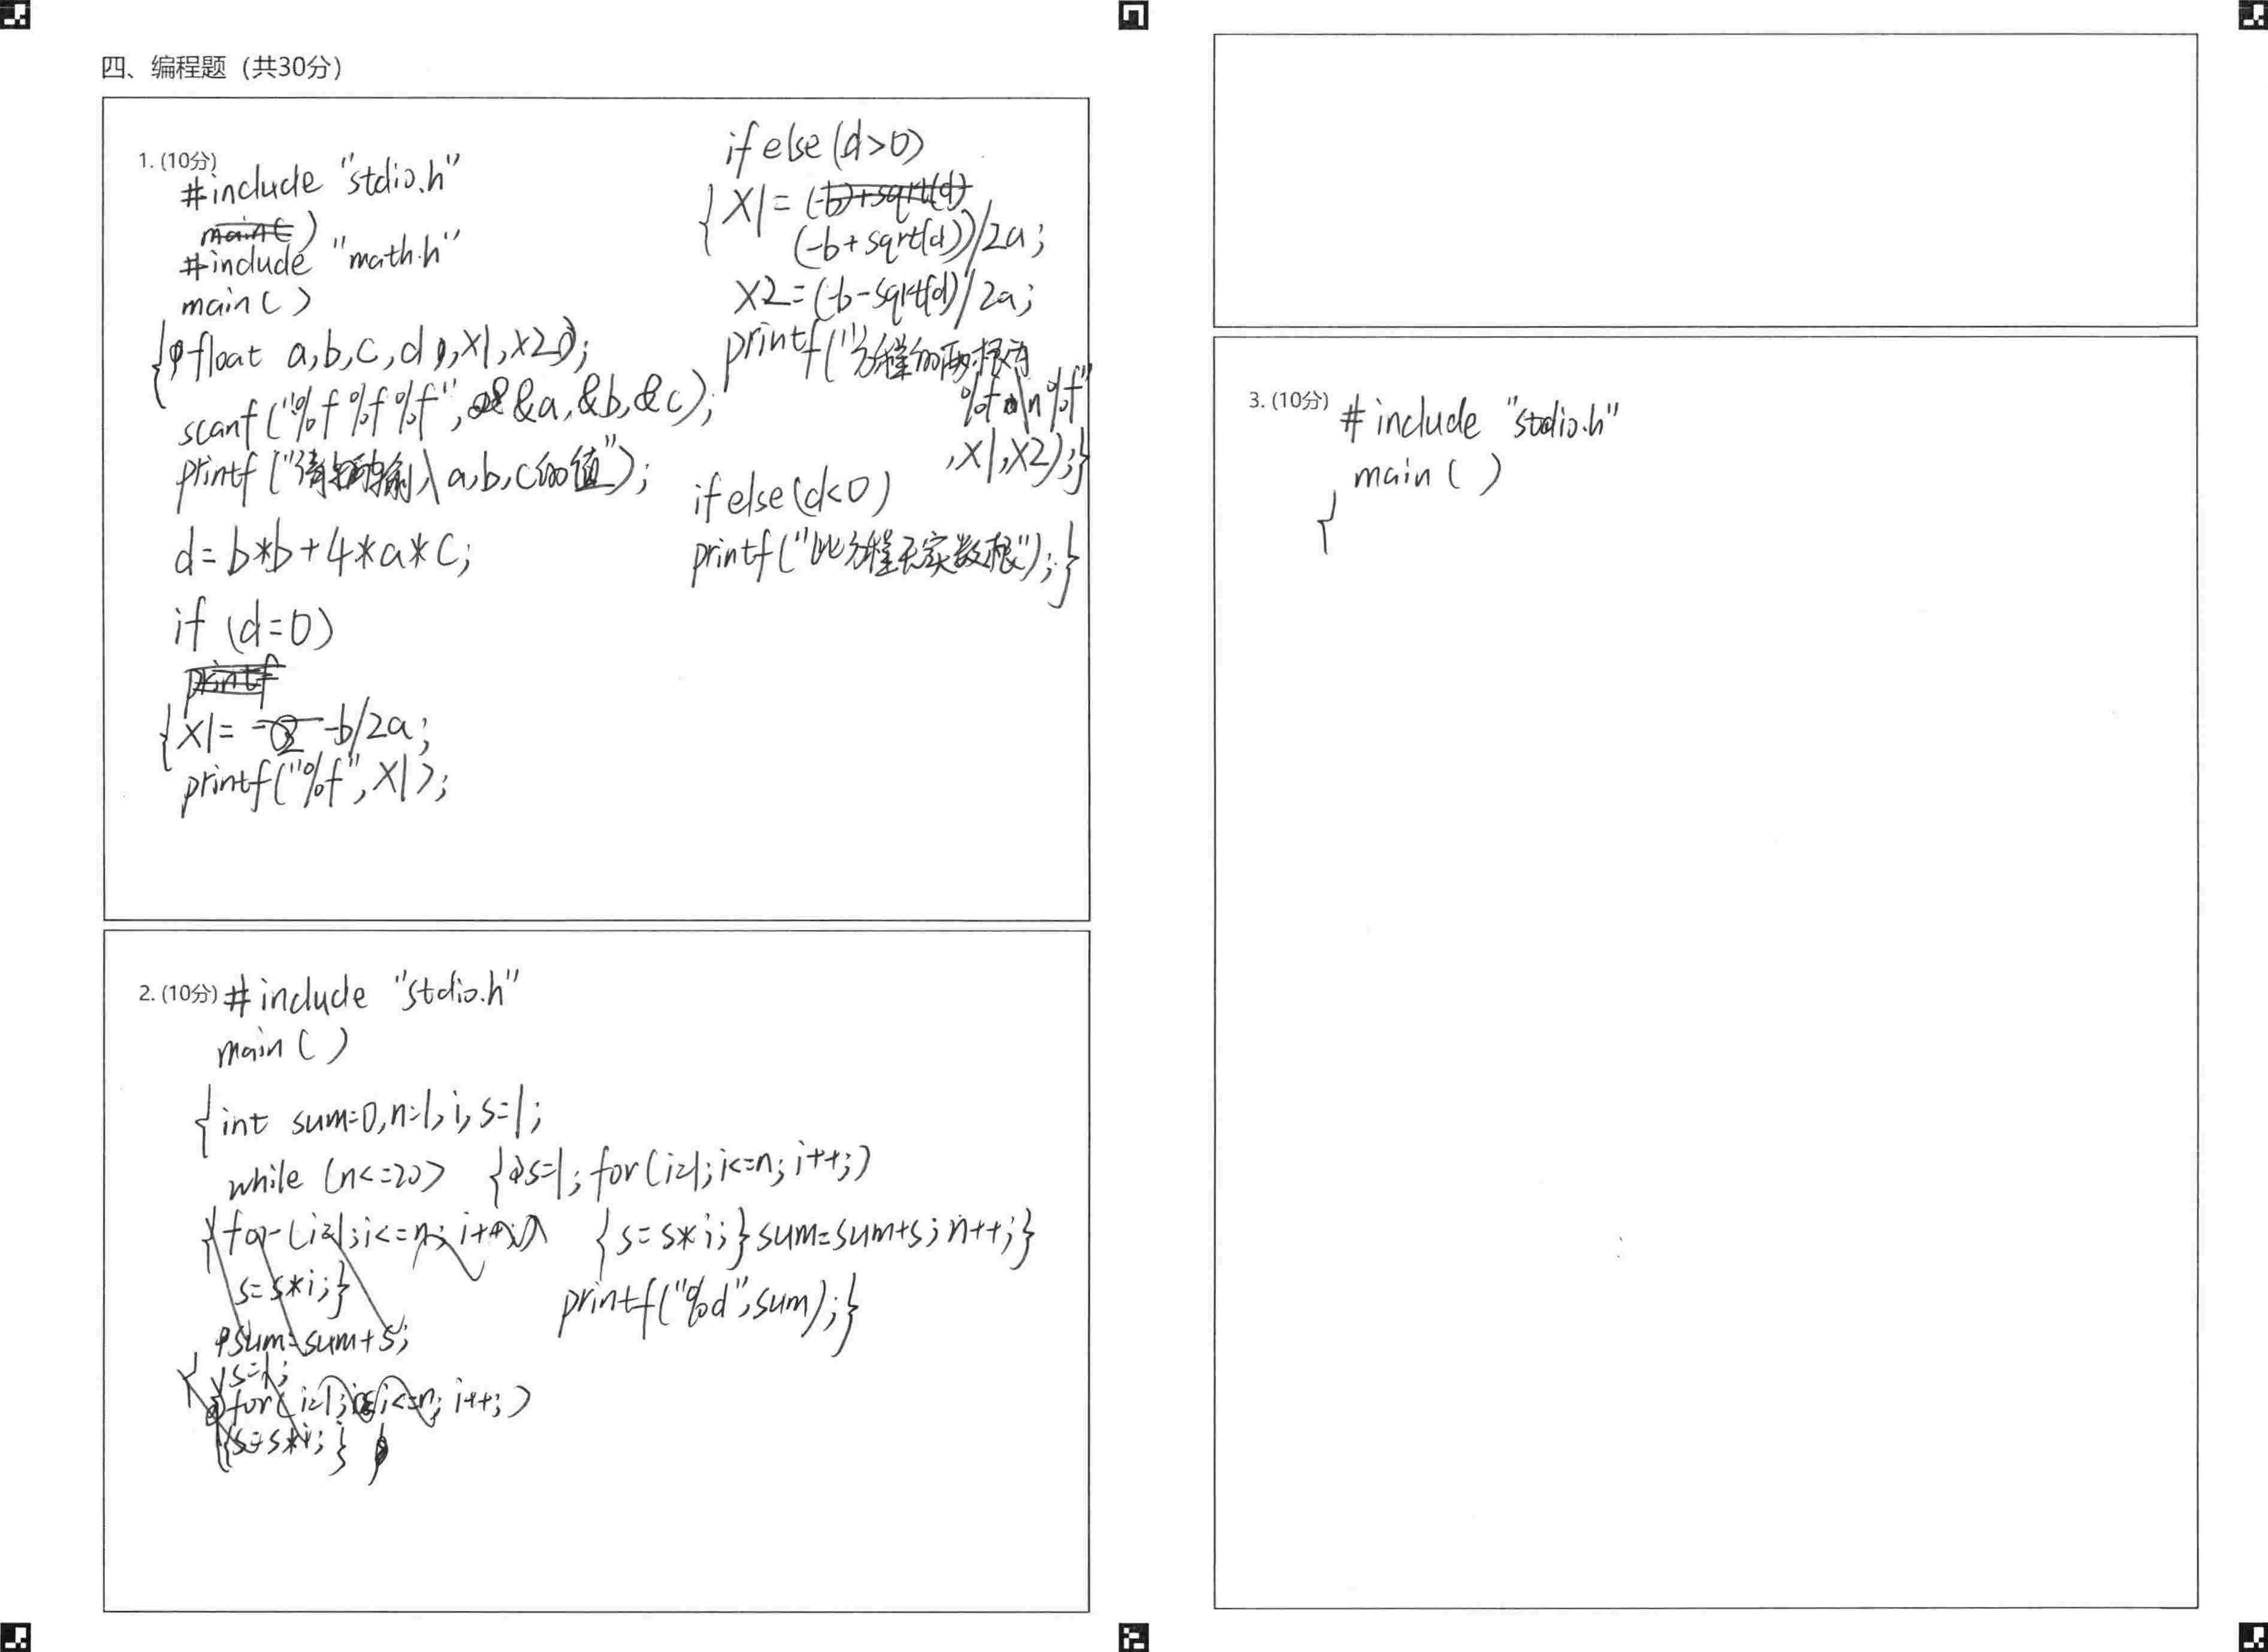 四、编程题（共30分）
1. (10分)
#include "stdio.h"
#include "math.h"
main( )
{float a,b,c,d,x1,x2;
scanf("%f%f%f",&a,&b,&c);
printf("请输入a,b,c的值");
d=b*b+4*a*c;
if (d=0)
{x1= -b/2a;
printf("%f",x1);
if else(d>0)
{x1=
(-b+sqrt(d))/2a;
x2=(-b-sqrt(d)/2a;
printf("方程的两根为
%f\n%f"
,x1,x2);}
if else(d<0)
printf("此方程无实数根");}
2. (10分) #include "stdio.h"
main( )
{int sum=0,n=1,i,s=1;
while (n<=20) {s=1; for(i=1;i<=n;i++;)
{s=s*i;}sum=sum+s;n++;}
printf("%d",sum);}
3. (10分) #include "stdio.h"
main( )
{